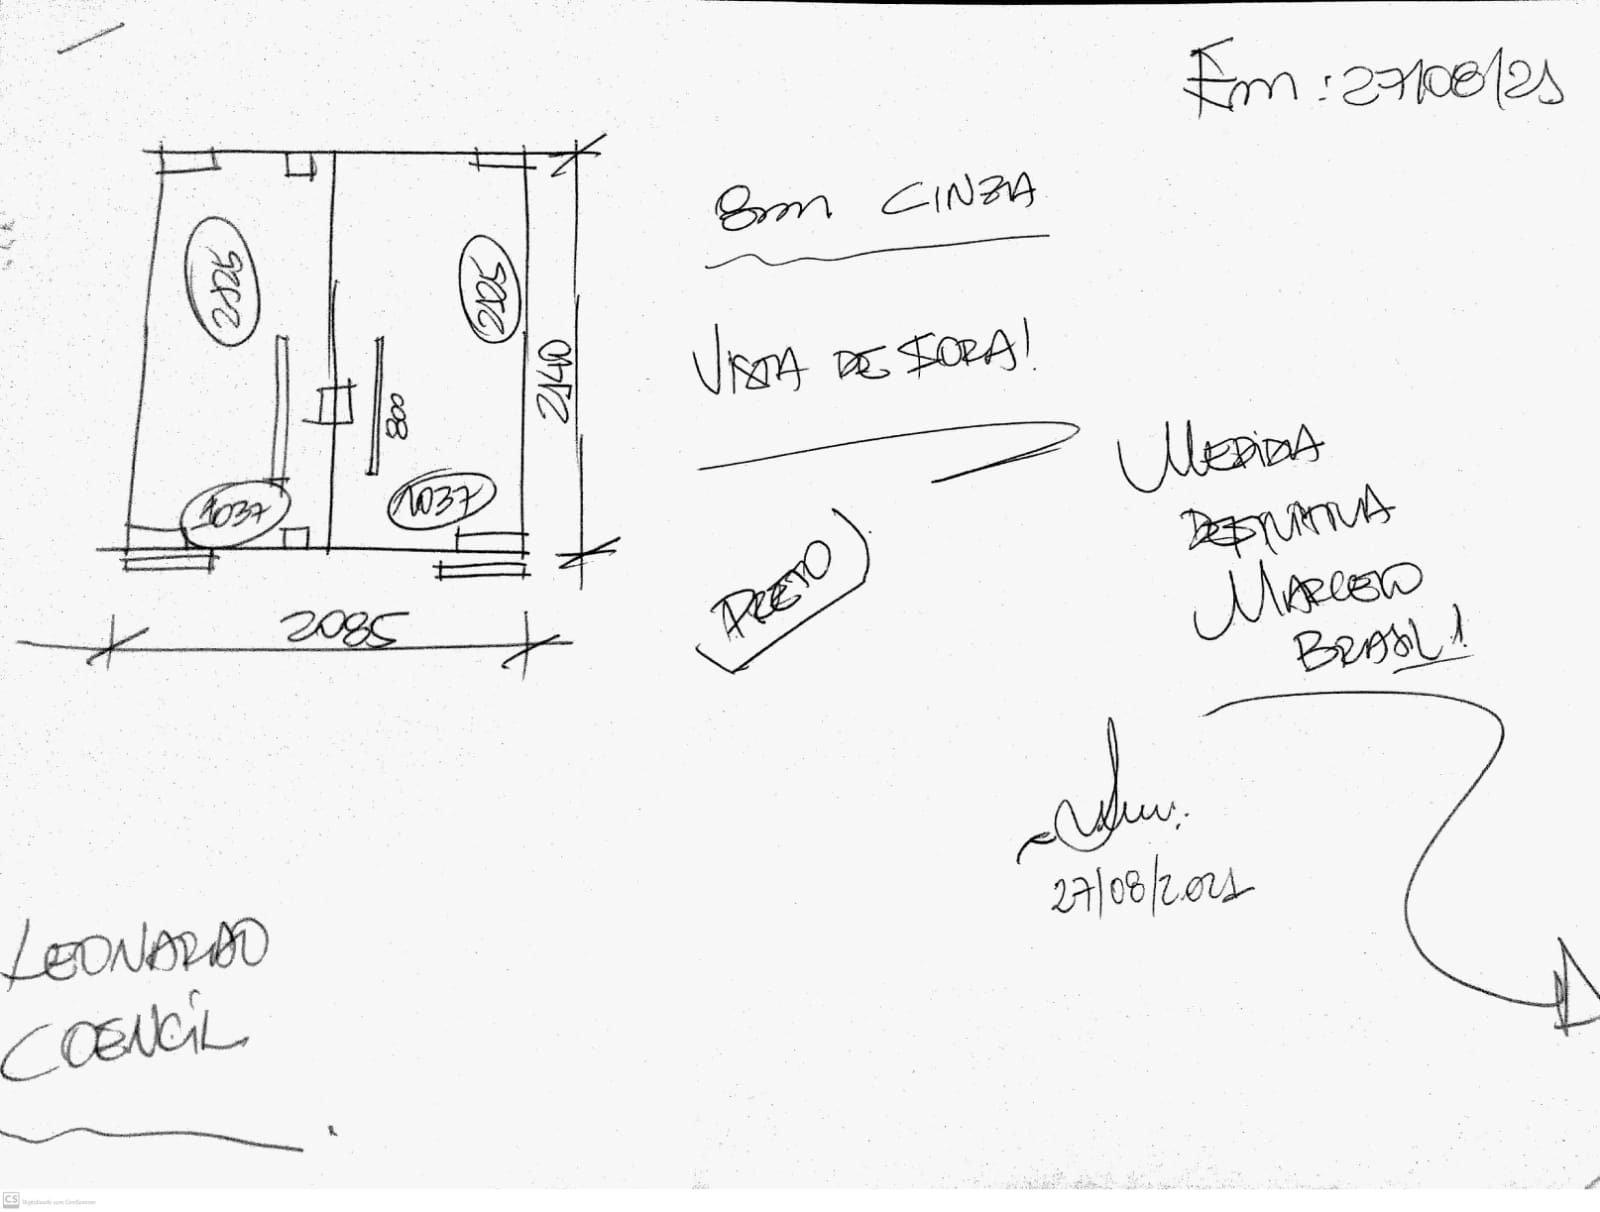 Em: 27/08/21
8mm CINZA
VISTA DE FORA!
2140
800
1037
1037
2085
PRETO
MEDIDA
DEFINITIVA
MARCELO
BRASIL!
27/08/2021
LEONARDO
COENCIL
CS Digitalizado com CamScanner